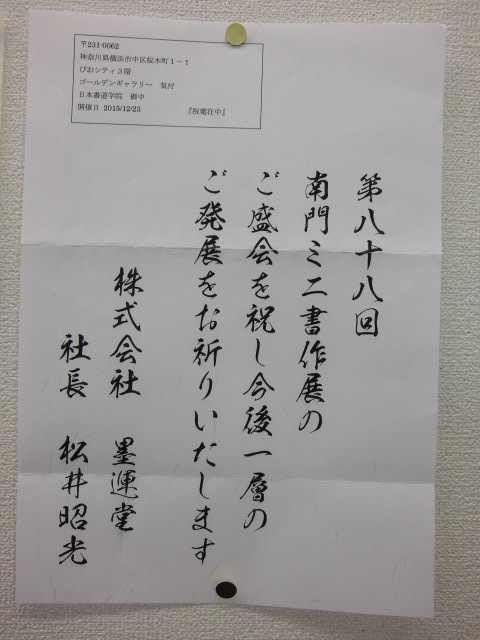 〒231-0062
神奈川県横浜市中区桜木町1－1
ぴおシティ3階
ゴールデンギャラリー　気付
日本書道学院　御中
開催日 2015/12/23　『祝電在中』
第八十八回
南門ミニ書作展の
ご盛会を祝し今後一層の
ご発展をお祈りいたします
株式会社　墨運堂
社長　松井昭光